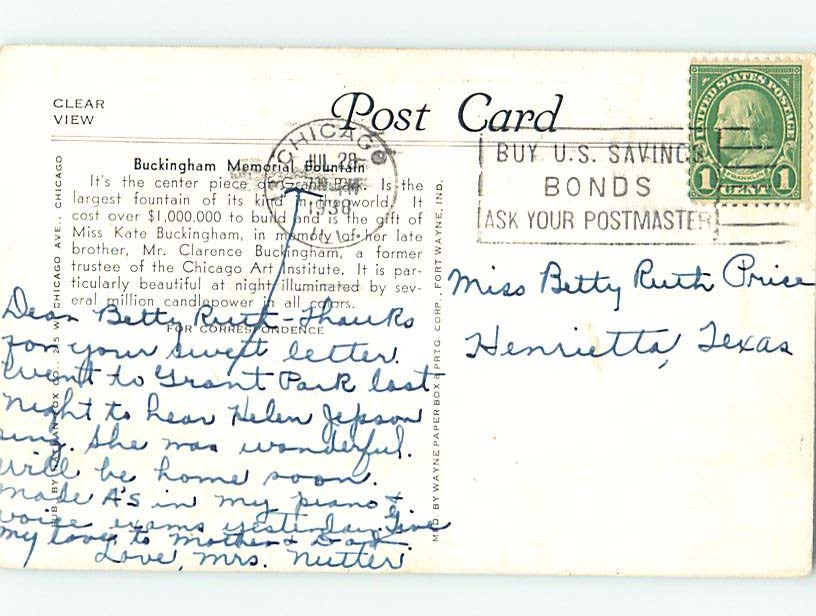 CLEAR
VIEW
Post Card
Buckingham Memorial Fountain
It's the center piece of Grant Park. Is the
largest fountain of its kind in the world. It
cost over $1,000,000 to build and is the gift of
Miss Kate Buckingham, in memory of her late
brother, Mr. Clarence Buckingham, a former
trustee of the Chicago Art Institute. It is par-
ticularly beautiful at night illuminated by sev-
eral million candlepower in all colors.
FOR CORRESPONDENCE
CHICAGO
JUL 28
1938
ILL.
BUY U.S. SAVINGS
BONDS
ASK YOUR POSTMASTER
UNITED STATES POSTAGE
FRANKLIN
1 CENT 1
Dear Betty Ruth - Thanks
for your sweet letter.
Went to Grant Park last
night to hear Helen Jepson
sing. She was wonderful.
Will be home soon.
Made A's in my piano &
voice exams yesterday. Give
my love to Mother & Dad.
Love, Mrs. Nutter
Miss Betty Ruth Price
Henrietta, Texas
CHICAGO AVE., CHICAGO
MFD. BY WAYNE PAPER BOX & PRTG. CORP., FORT WAYNE, IND.